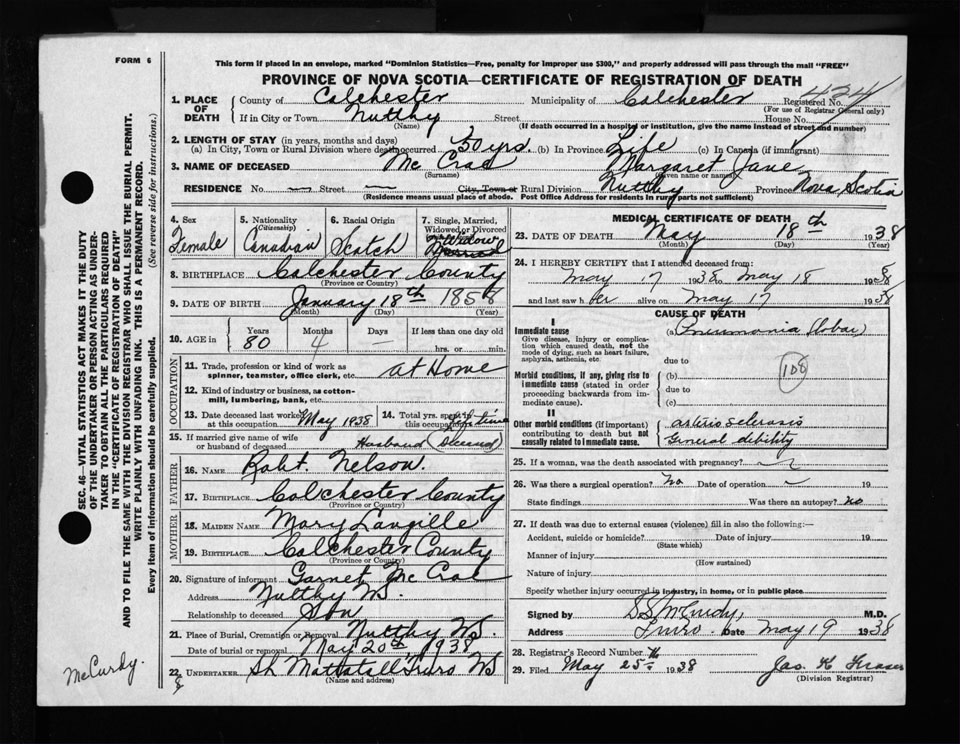 FORM 6
This form if placed in an envelope, marked "Dominion Statistics—Free, penalty for improper use $300," and properly addressed will pass through the mail "FREE"
PROVINCE OF NOVA SCOTIA—CERTIFICATE OF REGISTRATION OF DEATH
1. PLACE OF DEATH
County of Colchester Municipality of Colchester Registered No. 424
(For use of Registrar General only)
If in City or Town Nuttby Street House No.
(Name) (If death occurred in a hospital or institution, give the name instead of street and number)
2. LENGTH OF STAY (in years, months and days)
(a) In City, Town or Rural Division where death occurred 50 yrs (b) In Province Life (c) In Canada (if immigrant)
3. NAME OF DECEASED Mc Crae Margaret Jane
(Surname) (Given name or names)
RESIDENCE No. — Street — City, Town or Rural Division Nuttby Province Nova Scotia
(Residence means usual place of abode. Post Office Address for residents in rural parts not sufficient)
4. Sex Female
5. Nationality (Citizenship) Canadian
6. Racial Origin Scotch
7. Single, Married, Widowed or Divorced Widow
8. BIRTHPLACE Colchester County
(Province or Country)
9. DATE OF BIRTH January 18th 1858
(Month) (Day) (Year)
10. AGE in Years 80 Months 4 Days — If less than one day old
hrs. or min.
OCCUPATION
11. Trade, profession or kind of work as spinner, teamster, office clerk, etc. at Home
12. Kind of industry or business, as cotton-mill, lumbering, bank, etc.
13. Date deceased last worked at this occupation May 1938 14. Total yrs. spent in this occupation Lifetime
15. If married give name of wife or husband of deceased Husband (Deceased)
FATHER
16. NAME Robt. Nelson.
17. BIRTHPLACE Colchester County
(Province or Country)
MOTHER
18. MAIDEN NAME Mary Langille
19. BIRTHPLACE Colchester County
(Province or Country)
20. Signature of informant Garnet Mc Crae
Address Nuttby NS.
Relationship to deceased Son
21. Place of Burial, Cremation or Removal Nuttby NS.
Date of burial or removal May 20th, 1938
22. UNDERTAKER Mattatall Truro NS
(Name and address)
MEDICAL CERTIFICATE OF DEATH
23. DATE OF DEATH May 18th 1938
(Month) (Day) (Year)
24. I HEREBY CERTIFY that I attended deceased from:
May 17 1938 to May 18 1938
and last saw her alive on May 17 1938
CAUSE OF DEATH
I
Immediate cause
Give disease, injury or complication which caused death, not the mode of dying, such as heart failure, asphyxia, asthenia, etc.
(a) Pneumonia (lobar)
due to
Morbid conditions, if any, giving rise to immediate cause (stated in order proceeding backwards from immediate cause).
(b)
108
due to
(c)
II
Other morbid conditions (if important) contributing to death but not causally related to immediate cause.
General debility
25. If a woman, was the death associated with pregnancy?
26. Was there a surgical operation? no Date of operation — 19
State findings Was there an autopsy? no
27. If death was due to external causes (violence) fill in also the following:—
Accident, suicide or homicide? Date of injury 19
(State which)
Manner of injury
(How sustained)
Nature of injury
Specify whether injury occurred in industry, in home, or in public place
Signed by McCurdy, M.D.
Address Truro. Date May 19 1938
28. Registrar's Record Number
29. Filed May 25 1938 Jas. K Fraser
(Division Registrar)
SEC. 46—VITAL STATISTICS ACT MAKES IT THE DUTY
OF THE UNDERTAKER OR PERSON ACTING AS UNDER-
TAKER TO OBTAIN ALL THE PARTICULARS REQUIRED
IN THE "CERTIFICATE OF REGISTRATION OF DEATH"
AND TO FILE THE SAME WITH THE DIVISION REGISTRAR WHO SHALL ISSUE THE BURIAL PERMIT.
WRITE PLAINLY WITH UNFADING INK. THIS IS A PERMANENT RECORD.
Every item of Information should be carefully supplied. (See reverse side for instructions.)
McCurdy.